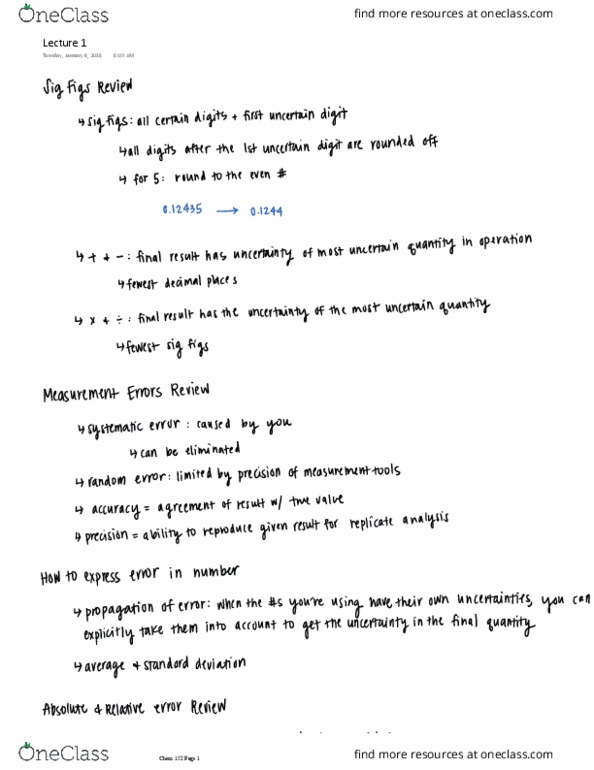 OneClass
find more resources at oneclass.com
Lecture 1
Tuesday, January 9, 2018 8:03 AM
Sig Figs Review
↳ sig figs: all certain digits + first uncertain digit
↳ all digits after the 1st uncertain digit are rounded off
↳ for 5: round to the even #
0.12435 → 0.1244
↳ + + - : final result has uncertainty of most uncertain quantity in operation
↳ fewest decimal places
↳ x + ÷ : final result has the uncertainty of the most uncertain quantity
↳ fewest sig figs
Measurement Errors Review
↳ systematic error : caused by you
↳ can be eliminated
↳ random error: limited by precision of measurement tools
↳ accuracy = agreement of result w/ true value
↳ precision = ability to reproduce given result for replicate analysis
How to express error in number
↳ propagation of error: when the #s you're using have their own uncertainties, you can
explicitly take them into account to get the uncertainty in the final quantity
↳ average + standard deviation
Absolute + Relative error Review
OneClass
Chem 152 Page 1
find more resources at oneclass.com